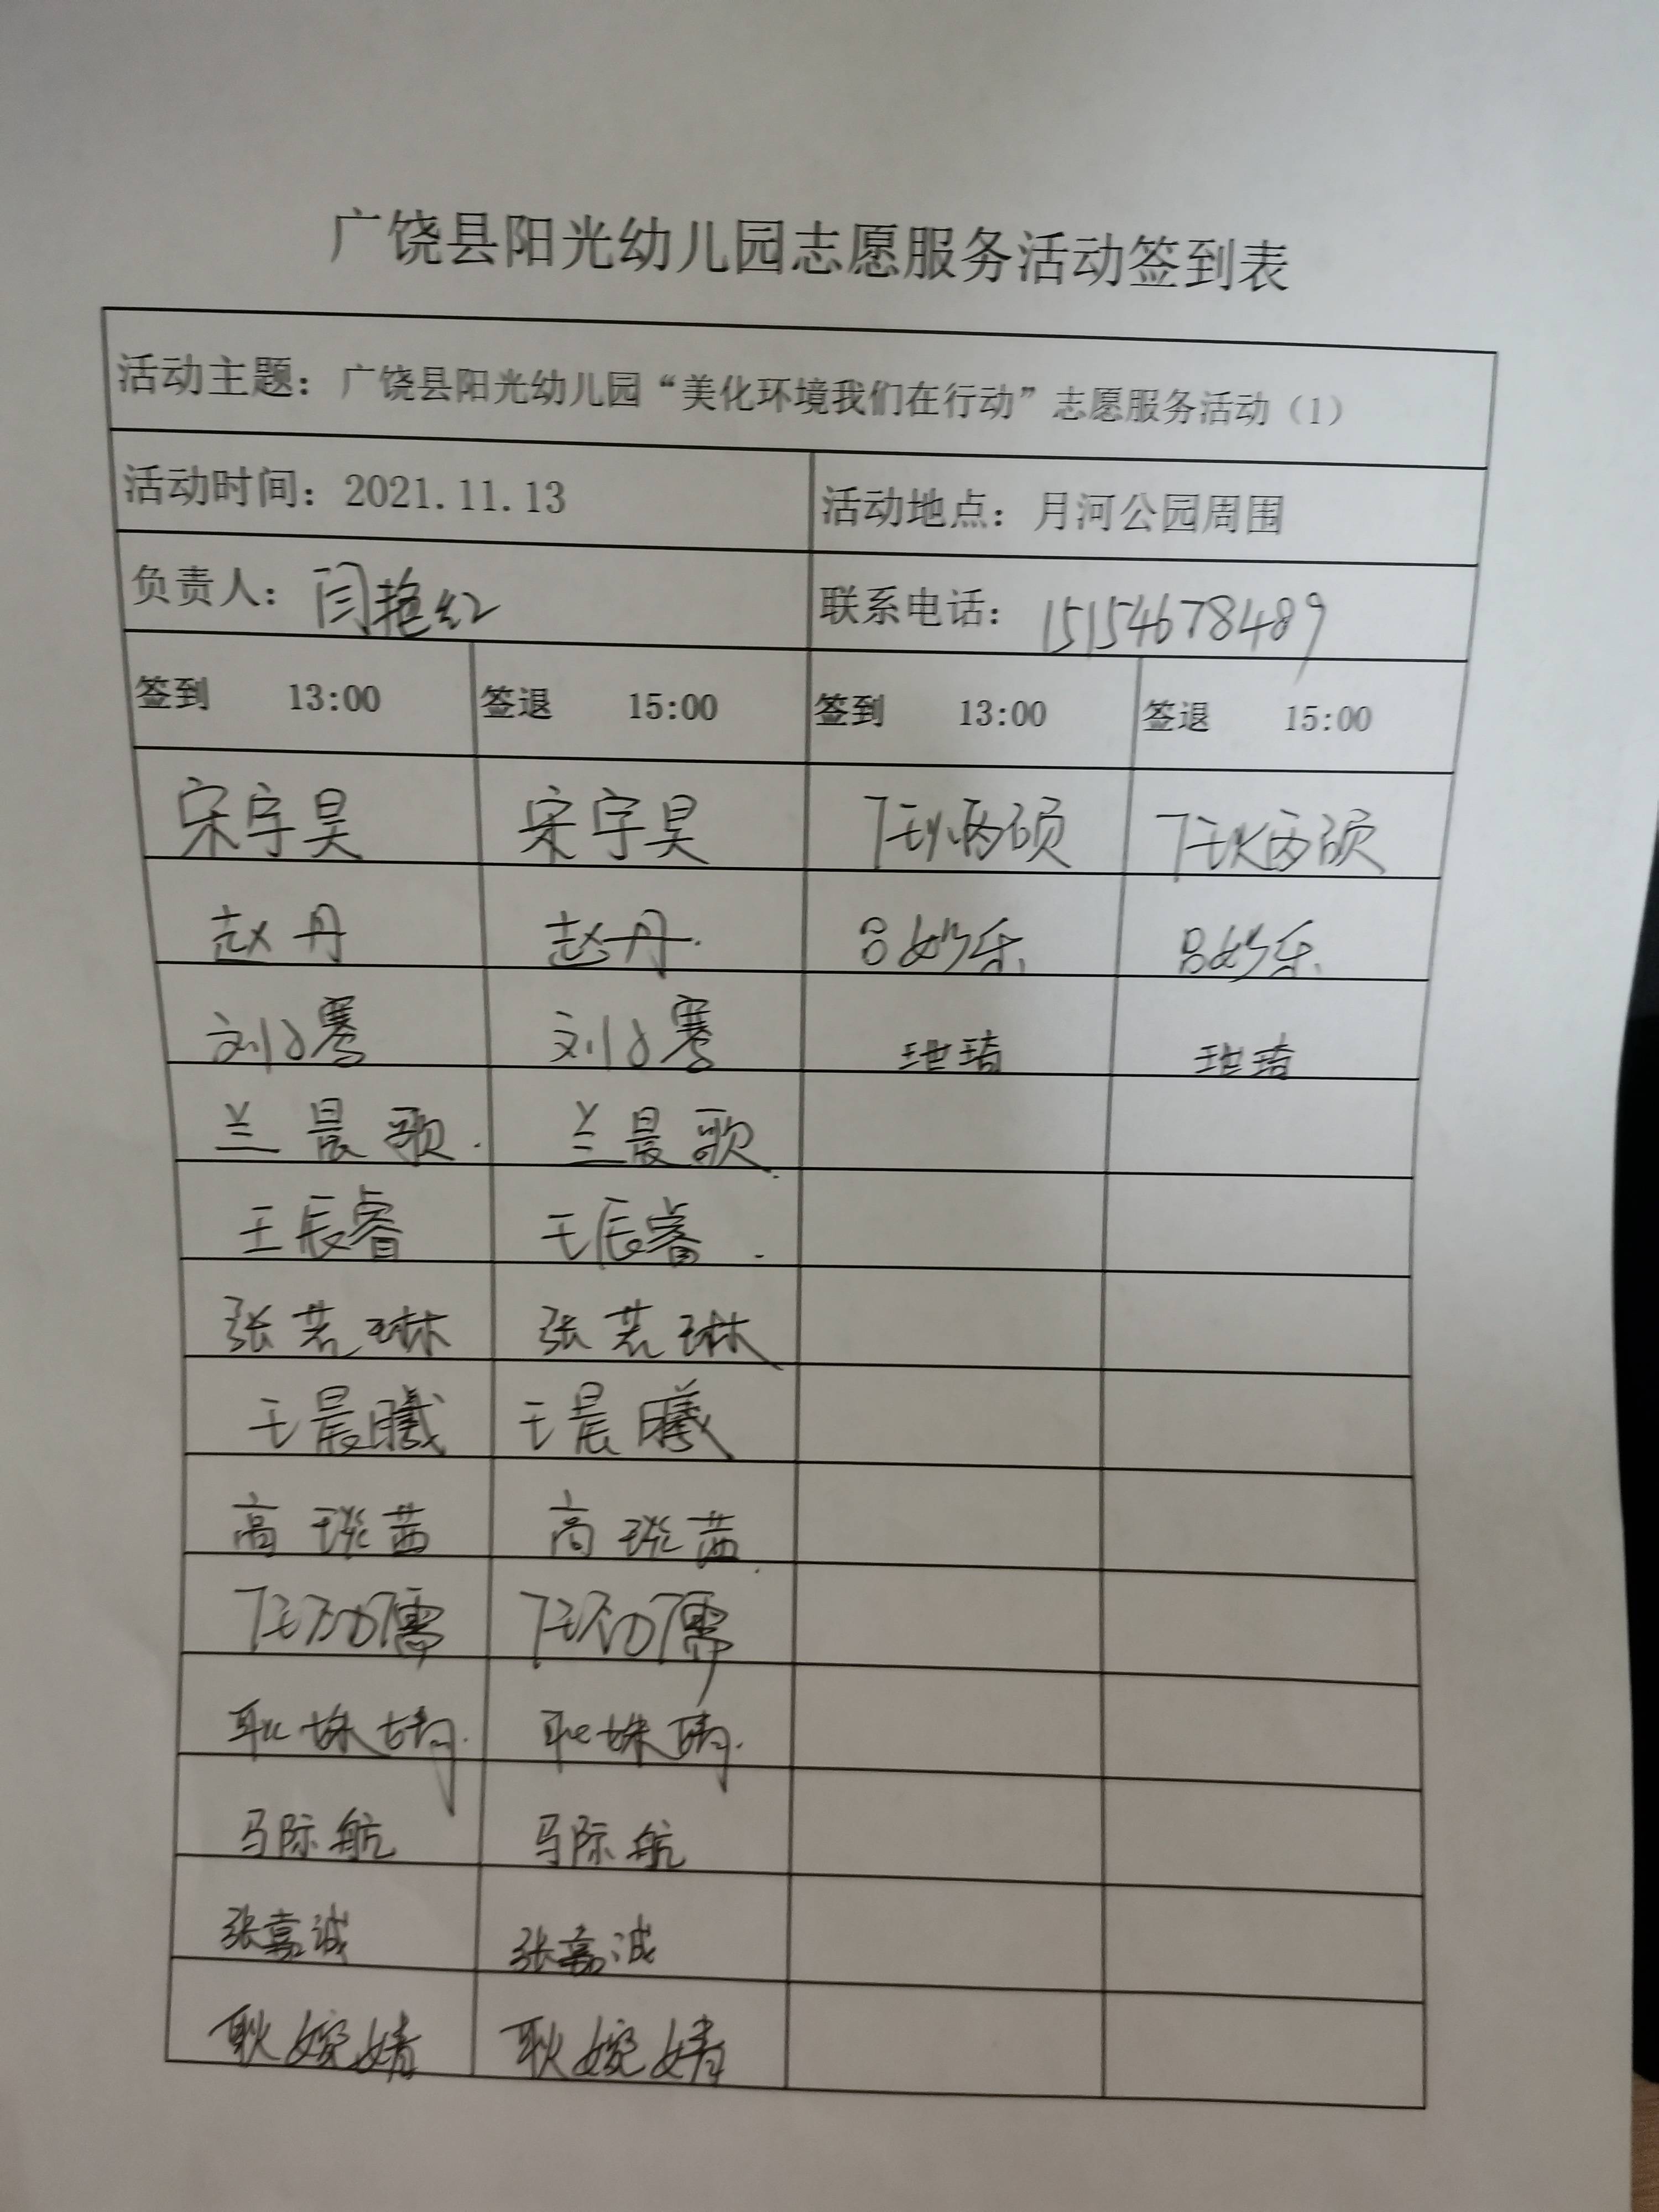 广饶县阳光幼儿园志愿服务活动签到表
活动主题：广饶县阳光幼儿园“美化环境我们在行动”志愿服务活动（1）
活动时间：2021.11.13 活动地点：月河公园周围
负责人：闫艳红 联系电话：15154678489
签到 13:00 签退 15:00 签到 13:00 签退 15:00
宋宇昊 宋宇昊
赵丹 赵丹 吕妙乐 吕妙乐
刘 骞 刘 骞
兰晨歌 兰晨歌
王辰睿 王辰睿
张若琳 张若琳
王晨曦 王晨曦
高 茜 高 茜
马际航 马际航
张嘉诚 张嘉诚
耿婉婧 耿婉婧